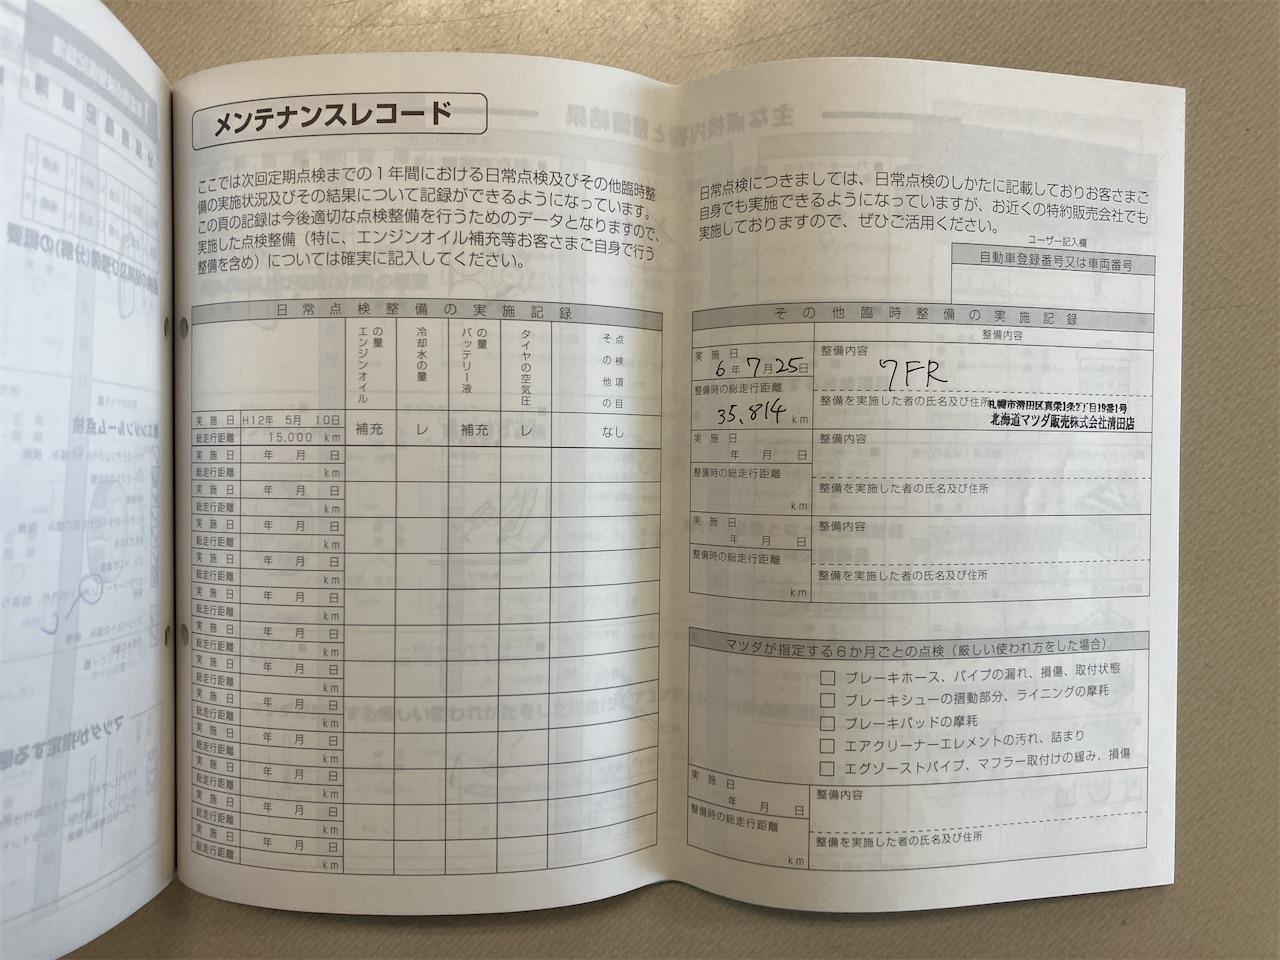 メンテナンスレコード
ここでは次回定期点検までの1年間における日常点検及びその他臨時整
備の実施状況及びその結果について記録ができるようになっています。
この頁の記録は今後適切な点検整備を行うためのデータとなりますので、
実施した点検整備（特に、エンジンオイル補充等お客さまご自身で行う
整備を含め）については確実に記入してください。
日常点検整備の実施記録
エンジンオイルの量
冷却水の量
バッテリー液の量
タイヤの空気圧
その他の点検項目
実施日 H12年 5月 10日
総走行距離 15,000 km
補充 レ 補充 レ なし
実施日 年 月 日
総走行距離 km
実施日 年 月 日
総走行距離 km
実施日 年 月 日
総走行距離 km
実施日 年 月 日
総走行距離 km
実施日 年 月 日
総走行距離 km
実施日 年 月 日
総走行距離 km
実施日 年 月 日
総走行距離 km
実施日 年 月 日
総走行距離 km
実施日 年 月 日
総走行距離 km
実施日 年 月 日
総走行距離 km
実施日 年 月 日
総走行距離 km
実施日 年 月 日
総走行距離 km
日常点検につきましては、日常点検のしかたに記載しておりお客さまご
自身でも実施できるようになっていますが、お近くの特約販売会社でも
実施しておりますので、ぜひご活用ください。
ユーザー記入欄
自動車登録番号又は車両番号
その他臨時整備の実施記録
整備内容
実施日
6年7月25日
整備時の総走行距離
35,814 km
整備内容
7FR
整備を実施した者の氏名及び住所
札幌市清田区真栄1条2丁目19番1号
北海道マツダ販売株式会社清田店
実施日
年 月 日
整備時の総走行距離
km
整備内容
整備を実施した者の氏名及び住所
実施日
年 月 日
整備時の総走行距離
km
整備内容
整備を実施した者の氏名及び住所
マツダが指定する6か月ごとの点検（厳しい使われ方をした場合）
□ ブレーキホース、パイプの漏れ、損傷、取付状態
□ ブレーキシューの摺動部分、ライニングの摩耗
□ ブレーキパッドの摩耗
□ エアクリーナーエレメントの汚れ、詰まり
□ エグゾーストパイプ、マフラー取付けの緩み、損傷
実施日
年 月 日
整備時の総走行距離
km
整備内容
整備を実施した者の氏名及び住所